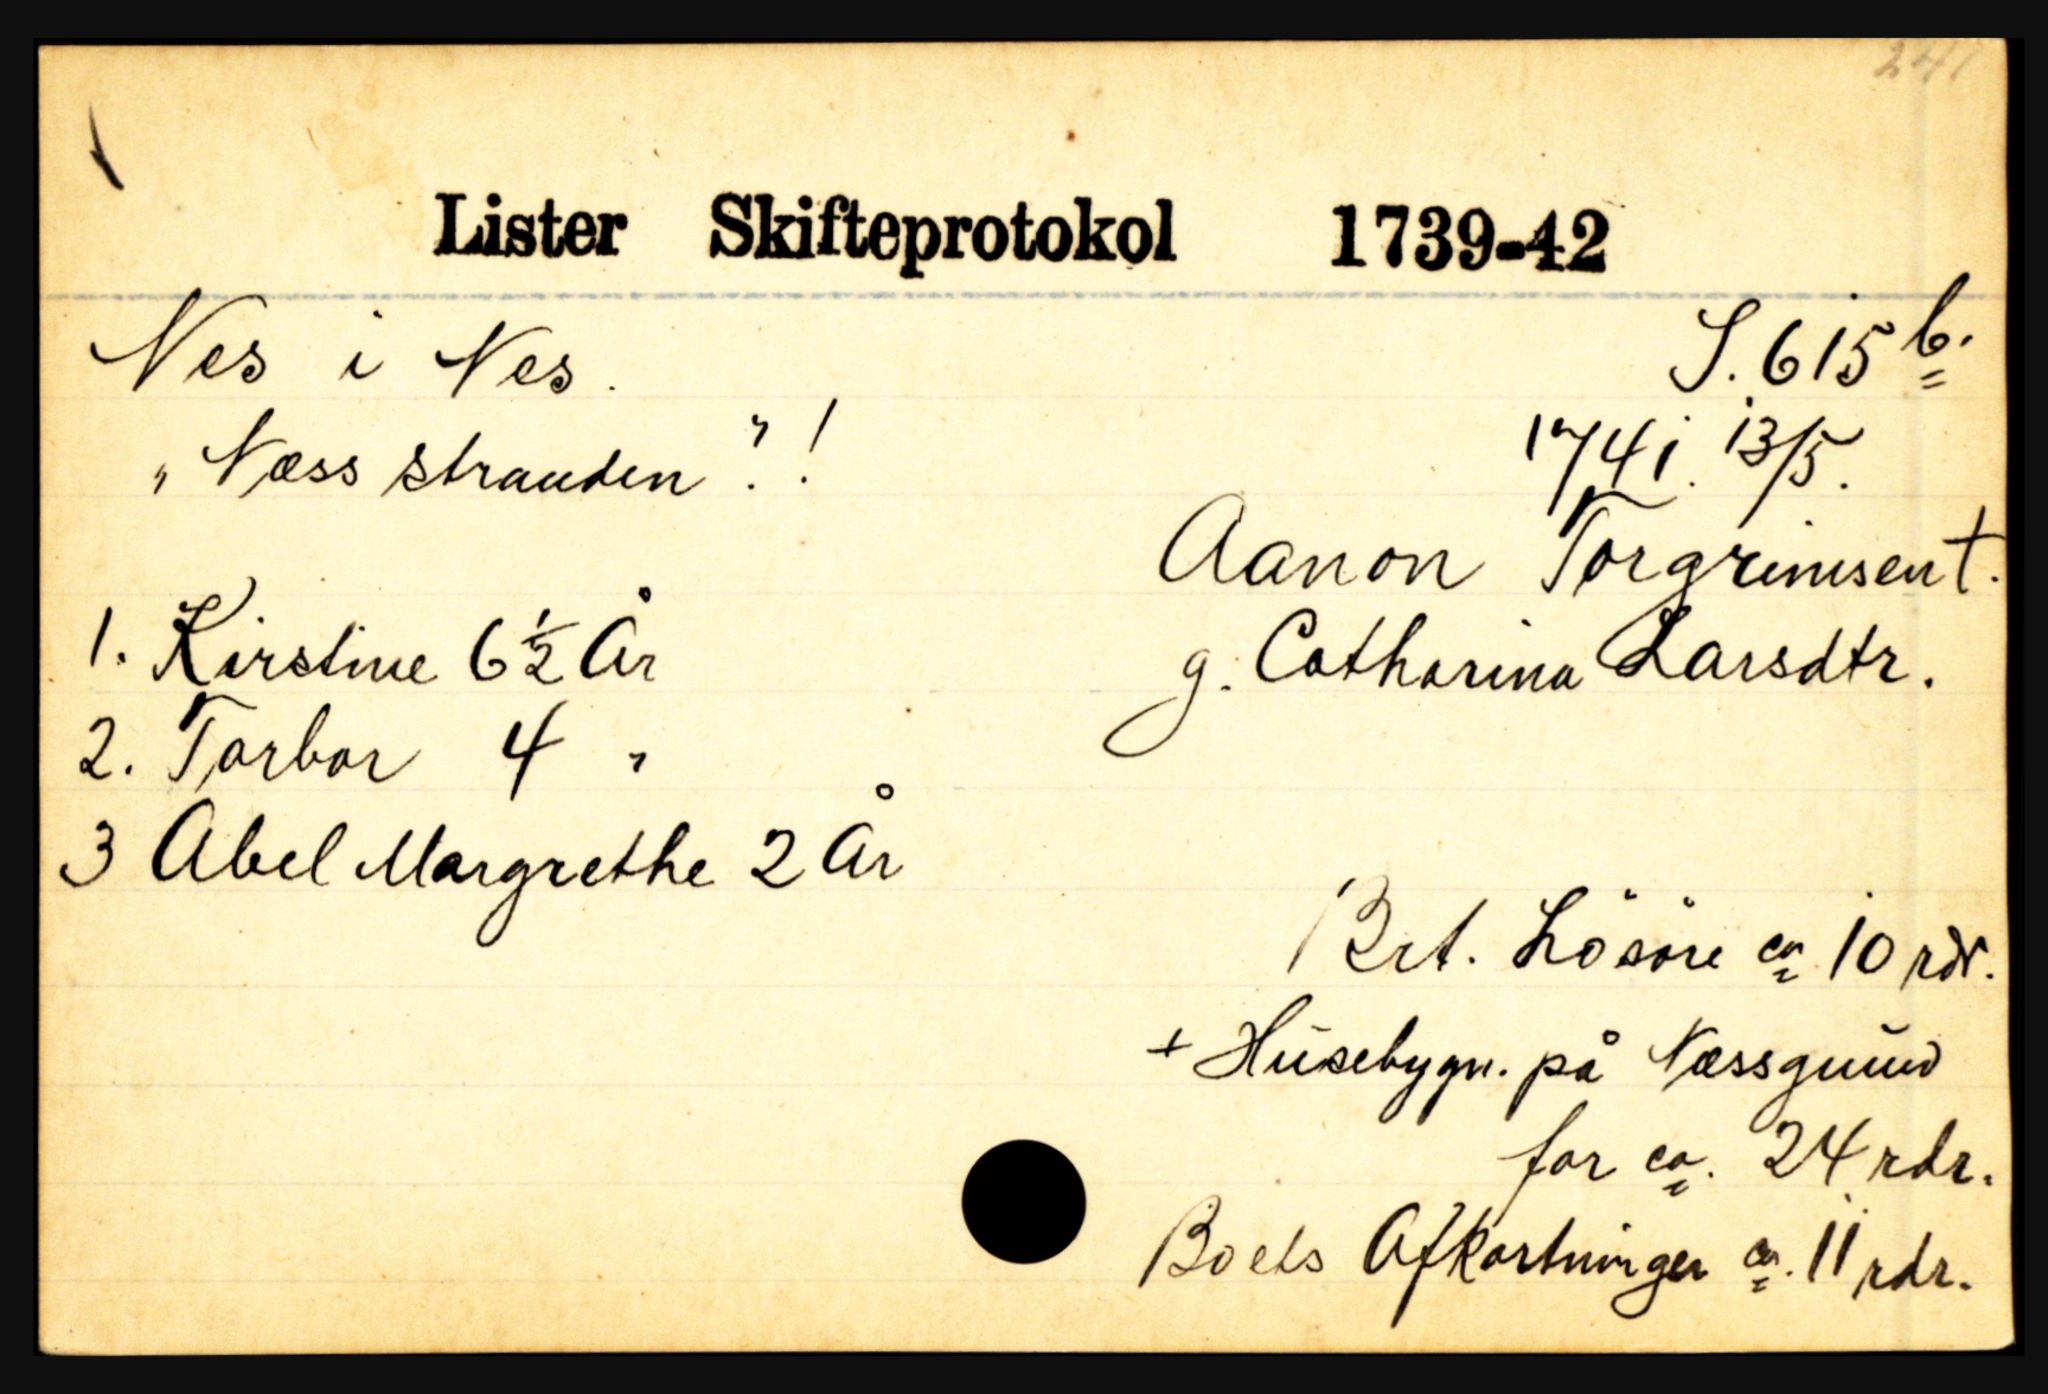 241
Lister Skifteprotokol 1739-42
Nes i Nes.
S. 615 b.
"Næss stranden"!
1741. 13/5.
Aanon Torgrimsen †.
g. Catharina Larsdtr.
1. Kirstine 6 ½ År
2. Tarbor 4 "
3 Abel Margrethe 2 År
Brt. Lösöre ca 10 rdr.
+ Husebygn. på Næssgrund
for ca. 24 rdr.
Boets Afkortninger ca. 11 rdr.